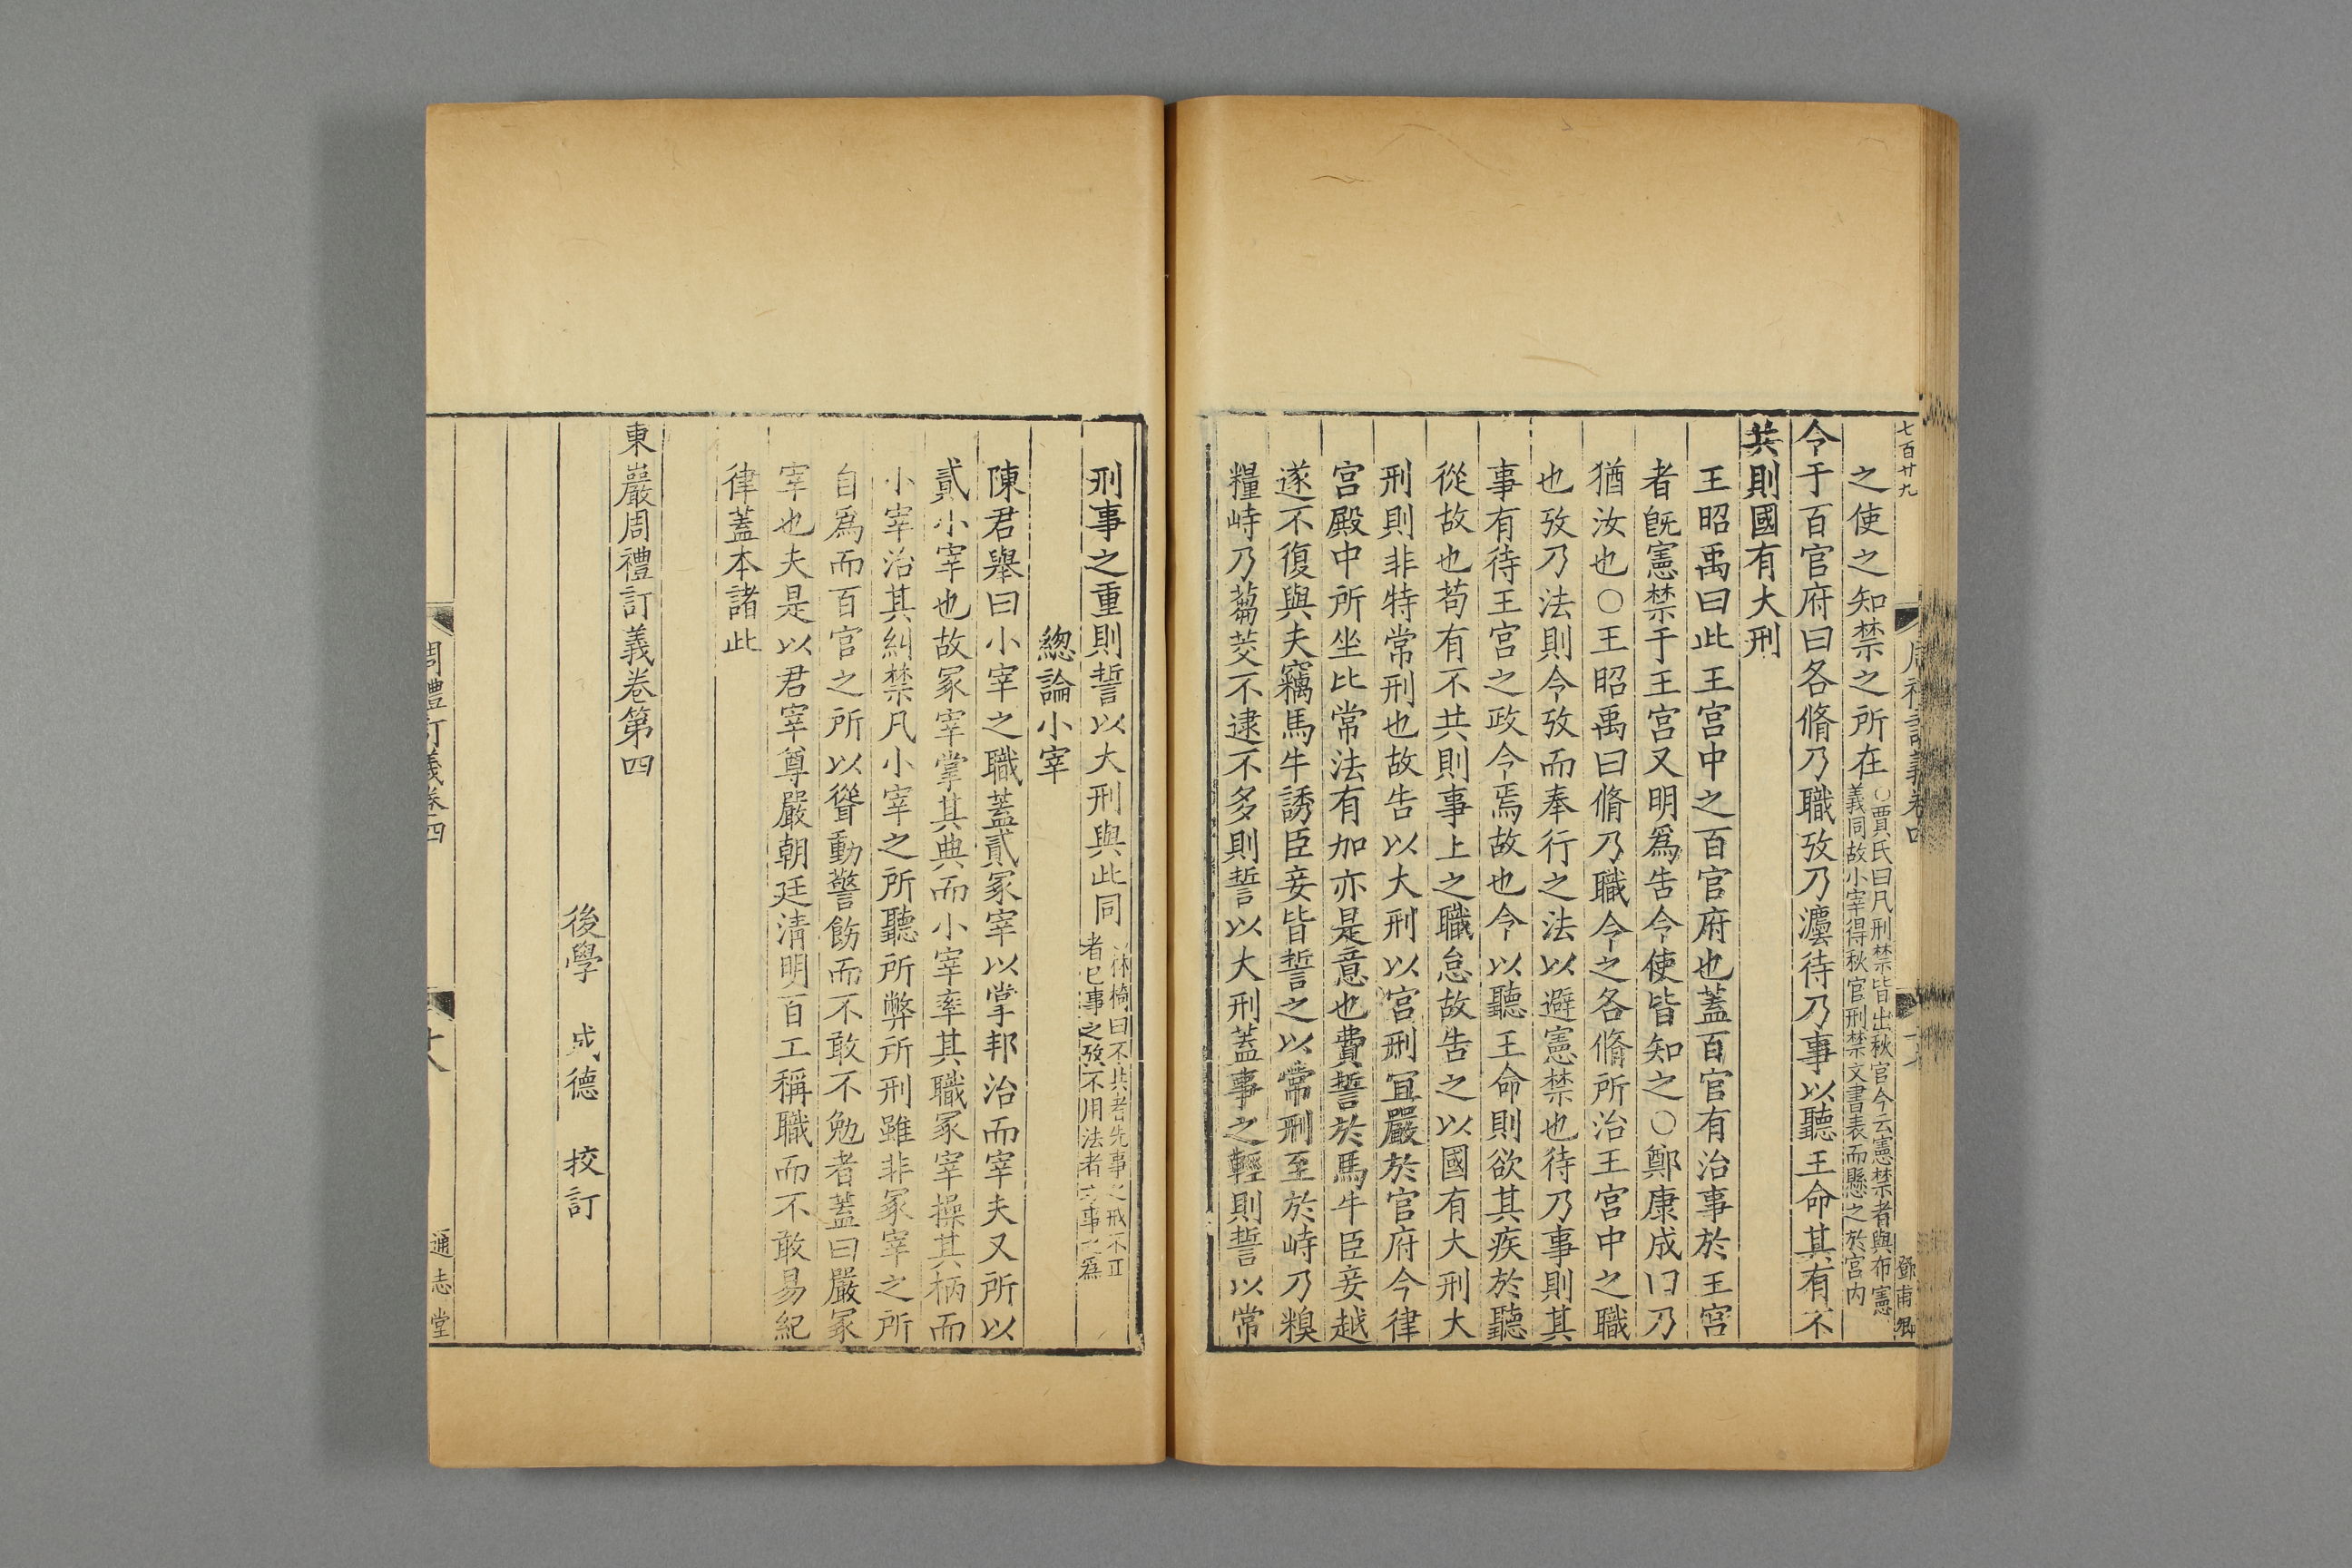 七百廿九
鄧甫卿
之使之知禁之所在○賈氏曰凡刑禁皆出秋官今云憲禁者與布憲義同故小宰得秋官刑禁文書表而懸之於宮内
令于百官府曰各脩乃職攷乃灋待乃事以聽王命其有不
共則國有大刑
王昭禹曰此王宮中之百官府也蓋百官有治事於王宮
者旣憲禁于王宮又明爲告令使皆知之○鄭康成曰乃
猶汝也○王昭禹曰脩乃職令之各脩所治王宮中之職
也攷乃法則令攷而奉行之法以避憲禁也待乃事則其
事有待王宮之政令焉故也令以聽王命則欲其疾於聽
從故也苟有不共則事上之職怠故告之以國有大刑大
刑則非特常刑也故告以大刑以宮刑冝嚴於官府今律
宮殿中所坐比常法有加亦是意也費誓於馬牛臣妾越
遂不復與夫竊馬牛誘臣妾皆誓之以常刑至於峙乃糗
糧峙乃蒭茭不逮不多則誓以大刑蓋事之輕則誓以常
刑事之重則誓以大刑與此同林椅曰不共者先事之戒不正者已事之攷不用法者之事之爲
緫論小宰
陳君舉曰小宰之職蓋貳冢宰以掌邦治而宰夫又所以
貳小宰也故冢宰掌其典而小宰率其職冢宰操其柄而
小宰治其糾禁凡小宰之所聽所弊所刑雖非冢宰之所
自爲而百官之所以聳動警飭而不敢不勉者蓋曰嚴冢
宰也夫是以君宰尊嚴朝廷清明百工稱職而不敢易紀
律蓋本諸此
東巖周禮訂義卷第四
後學 成德 挍訂
周禮訂義卷四
十八
通志堂